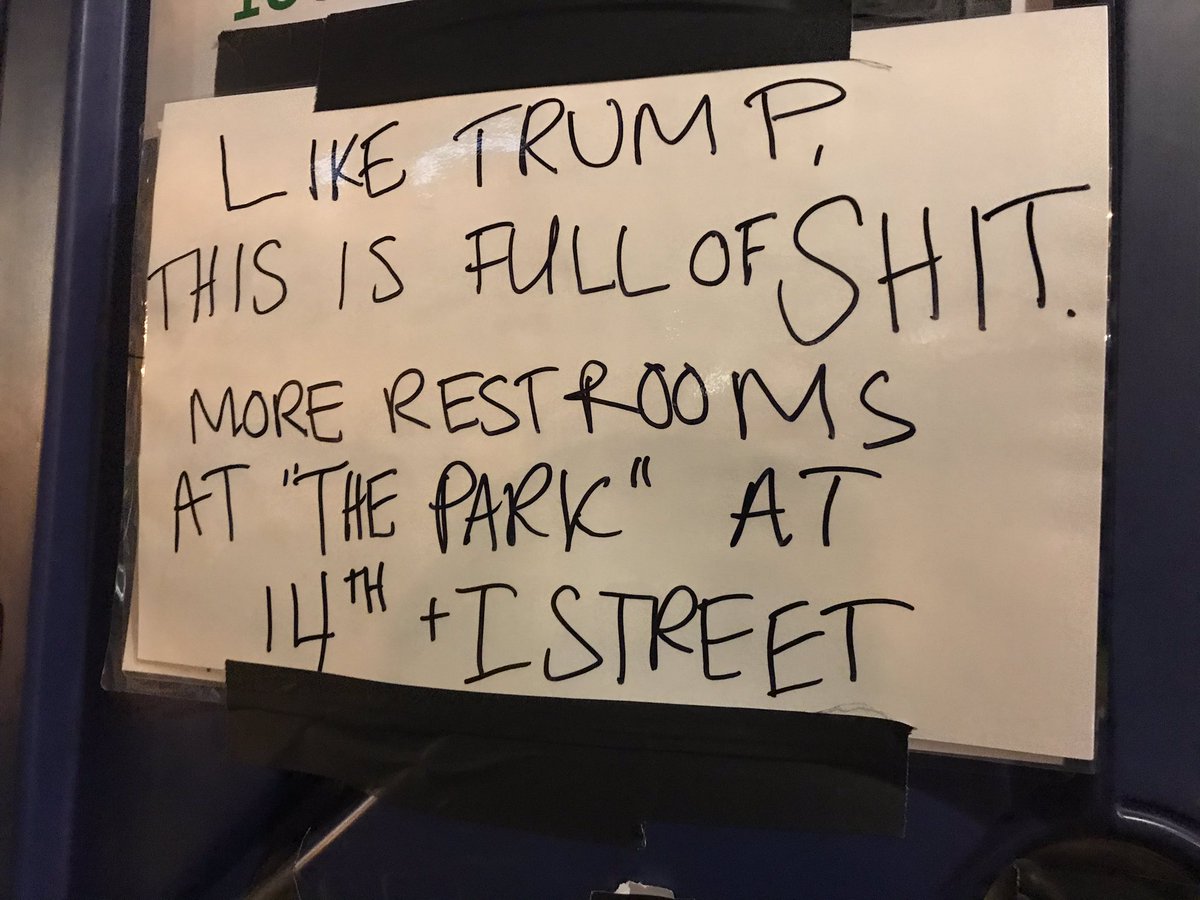 LIKE TRUMP,
THIS IS FULL OF SHIT.
MORE RESTROOMS
AT "THE PARK" AT
14TH + I STREET